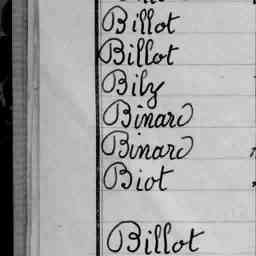 Billot
Billot
Bily
Binard
Binard
Biot
Billot